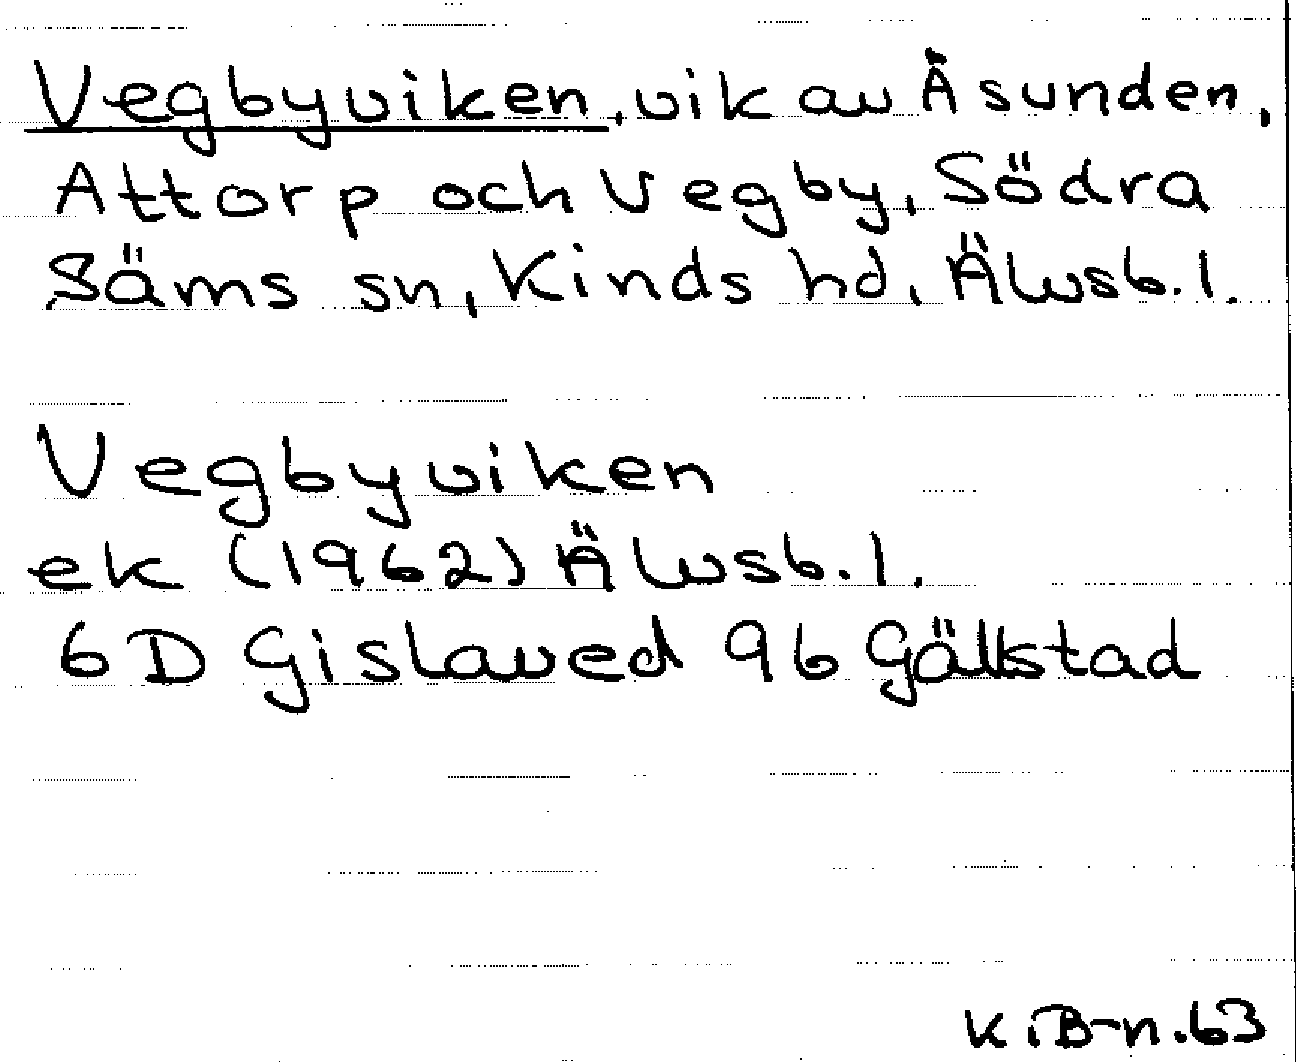 Vegbyviken, vik av Åsunden,
Attorp och Vegby, Södra
Säms sn, Kinds hd, Älvsb. l.
Vegbyviken
ek (1962) Älvsb. l.
6D Gislaved 96 Gällstad
K.B-n. 63